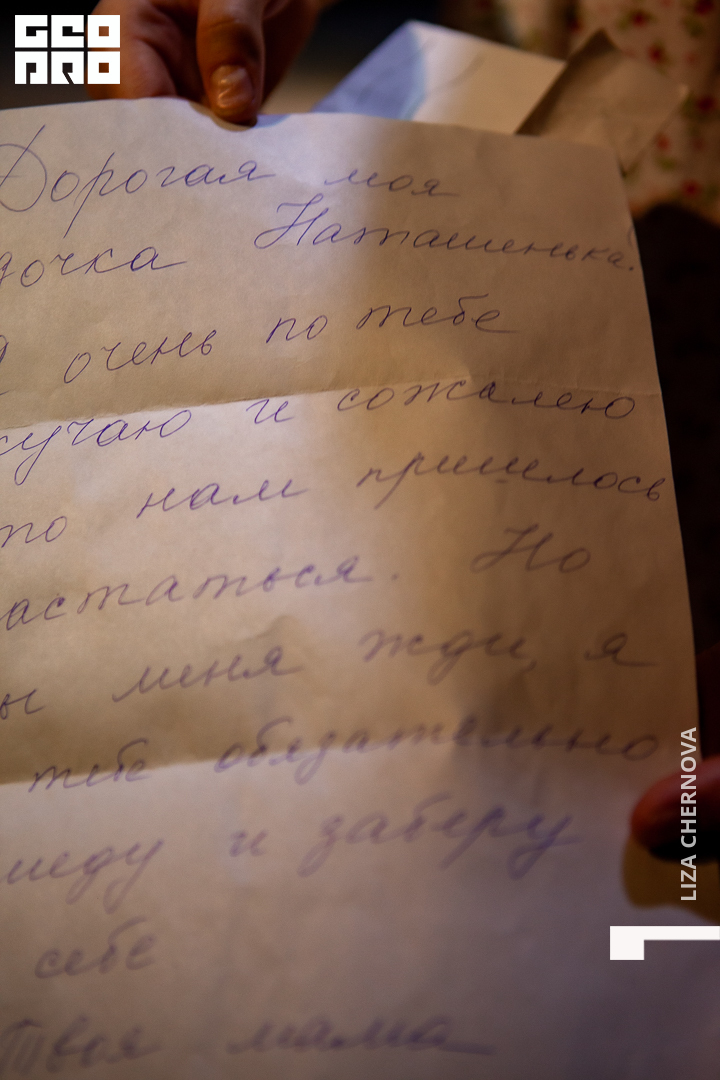 GEO
PRO
Дорогая моя
дочка Наташенька.
Я очень по тебе
скучаю и сожалею
что нам пришлось
растаться. Но
ты меня жди, я
к тебе обязательно
приеду и заберу
к себе
Твоя мама
LIZA CHERNOVA